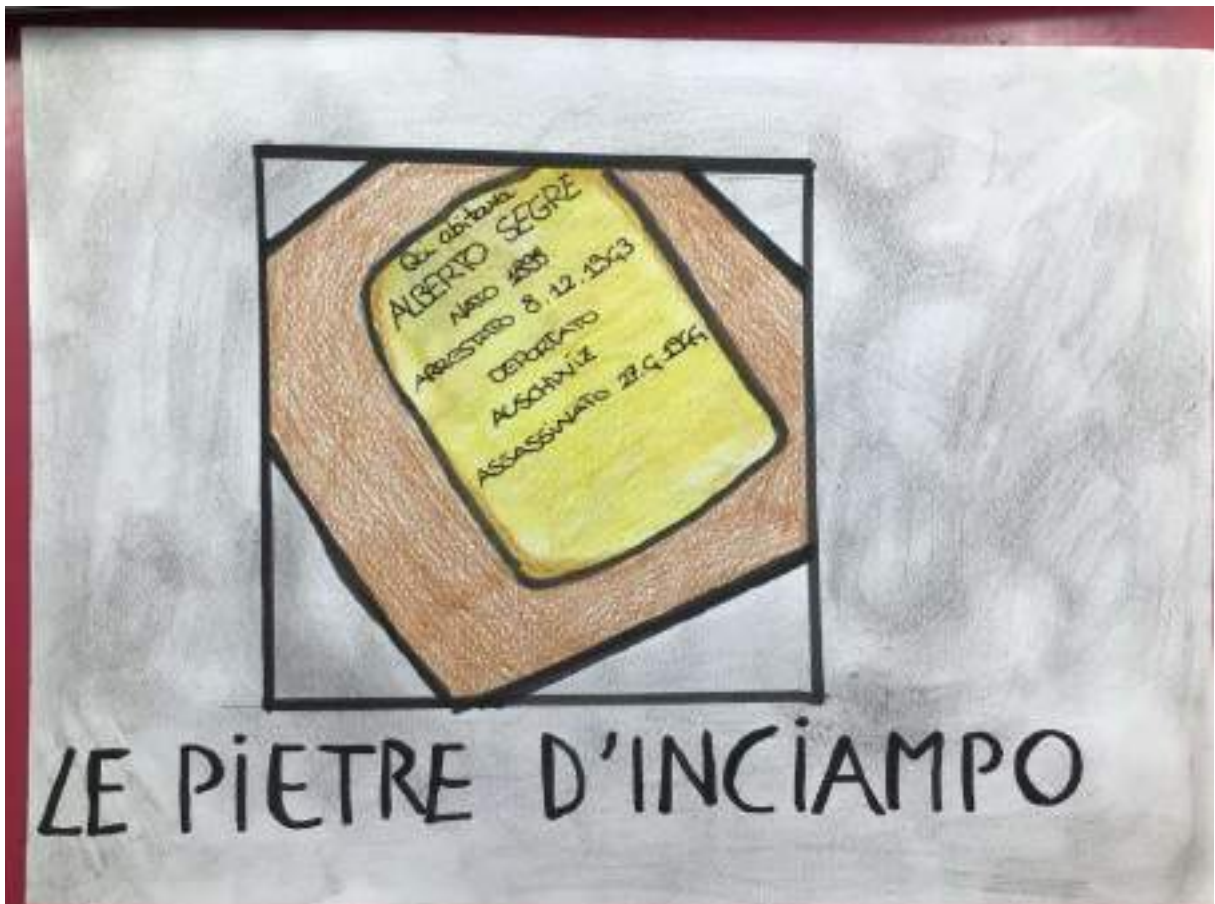 Qui abitava
ALBERTO SEGRE
NATO 1899
ARRESTATO 8.12.1943
DEPORTATO
AUSCHWITZ
ASSASSINATO 27.4.1944
LE PIETRE D'INCIAMPO